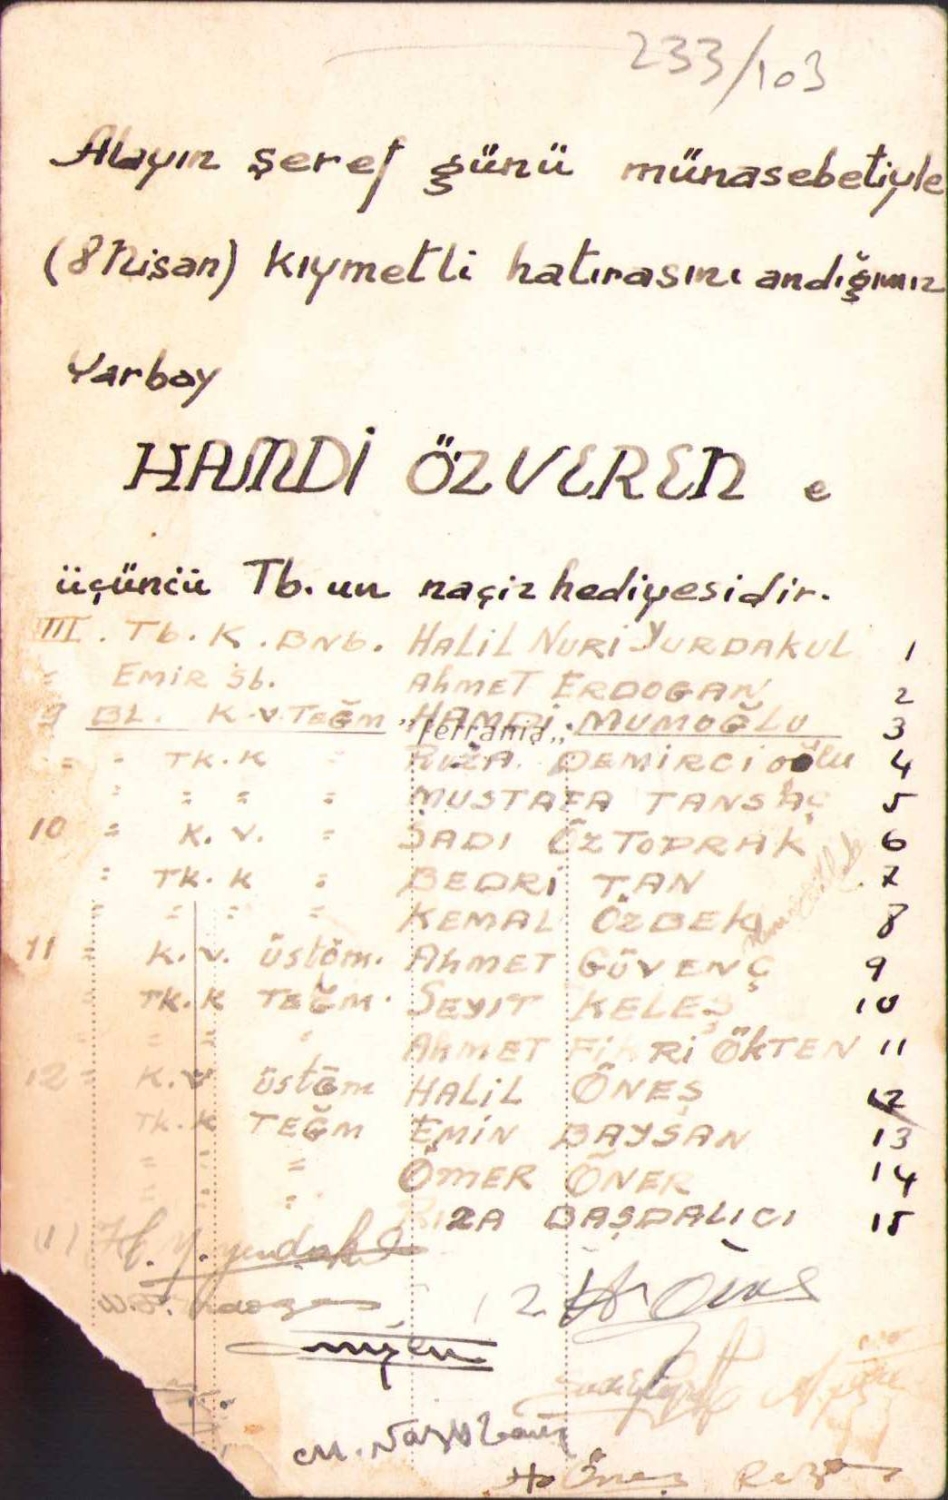 233/103
Alayın şeref günü münasebetiyle
(8 Nisan) kıymetli hatırasını andığımız
Yarbay
HAMDİ ÖZVEREN e
üçüncü Tb. un naçiz hediyesidir.
III. Tb. K. BNb. HALİL NURİ YURDAKUL 1
= EMİR Sb. AhMET ERDOGAN 2
9 BL. K.V. TEĞM HAMDİ MUMOĞLU 3
"Ferrania"
= = TK.K = RIZA DEMİRCİOĞLU 4
= = = = MUSTAFA TANSAÇ 5
10 = K.V. = SADI ÖZTOPRAK 6
= TK.K = BEDRİ TAN 7
= = = = KEMAL ÖZBEK 8
11 = K.V. üstğm. AhMET GÜVENÇ 9
= TK.K TEĞM. SEYIT KELEŞ 10
= = = AhMET FİKRİ ÖKTEN 11
12 = K.V üstğm HALİL ÖNEŞ 12
TK.K TEĞM EMİN BAYSAN 13
= = ÖMER ÖNER 14
= = RIZA BAŞDALICI 15
(1) H. N. Yurdakul
12 H. Öneş
H. Öneş